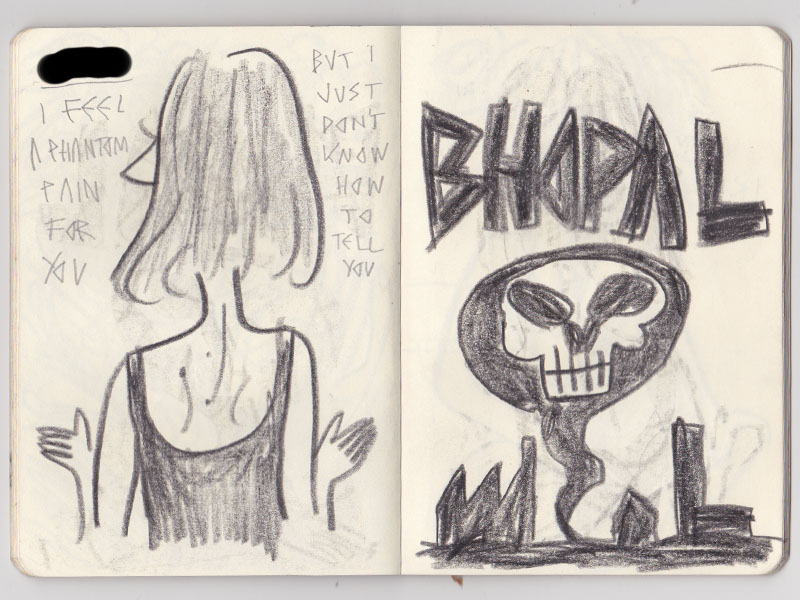 I FEEL
A PHANTOM
PAIN
FOR
YOU
BUT I
JUST
DON'T
KNOW
HOW
TO
TELL
YOU
BHOPAL